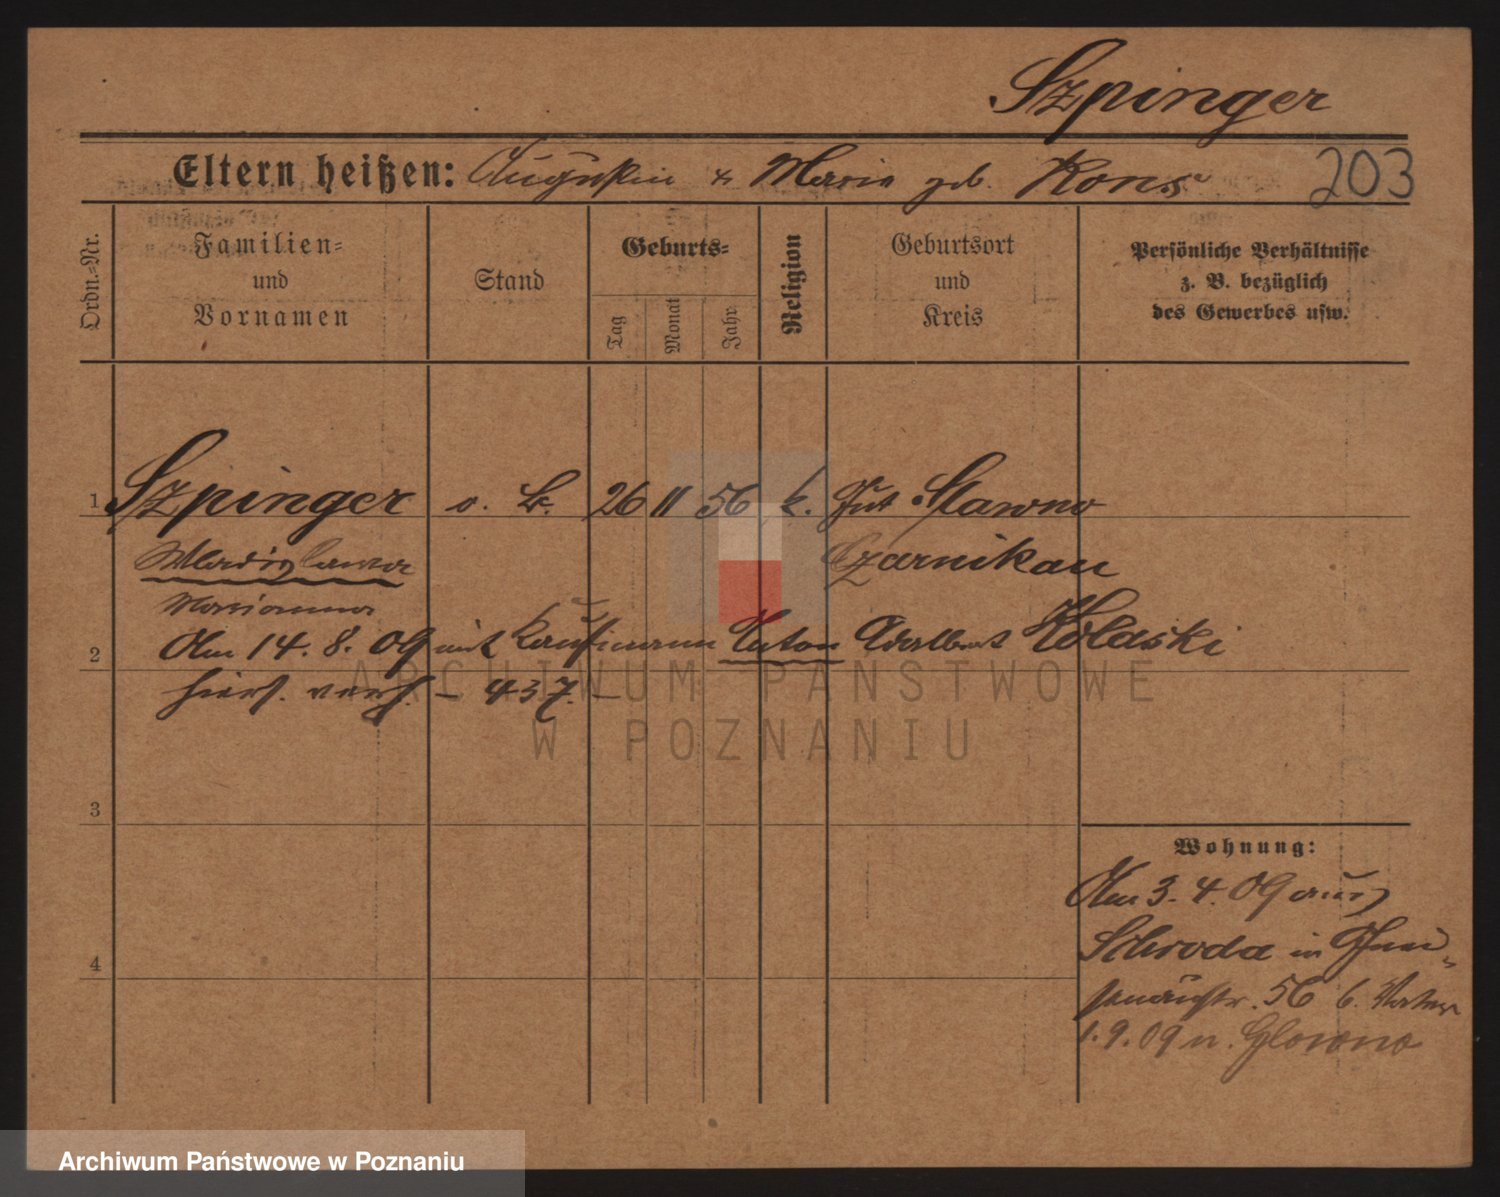 Szpinger
Eltern heißen: Augustin & Maria geb. Kons 203
Ordn.=Nr.
Familien=
und
Vornamen
Stand
Geburts=
Tag
Monat
Jahr
Religion
Geburtsort
und
Kreis
Persönliche Verhältnisse
z. B. bezüglich
des Gewerbes usw.
1 Szpinger o. B. 26 11 56 k. Gut Slawno
Wladislawa Czarnikau
Marianna
2 Am 14. 8. 09 mit Kaufmann Anton Adalbert Kolaski
hiers. verh. – 437. –
3
4
Wohnung:
Am 3. 4. 09 aus
Schroda in Gnei-
senaustr. 56 b. Vater
1. 9. 09 n. Glowno
ARCHIWUM PAŃSTWOWE
W POZNANIU
Archiwum Państwowe w Poznaniu